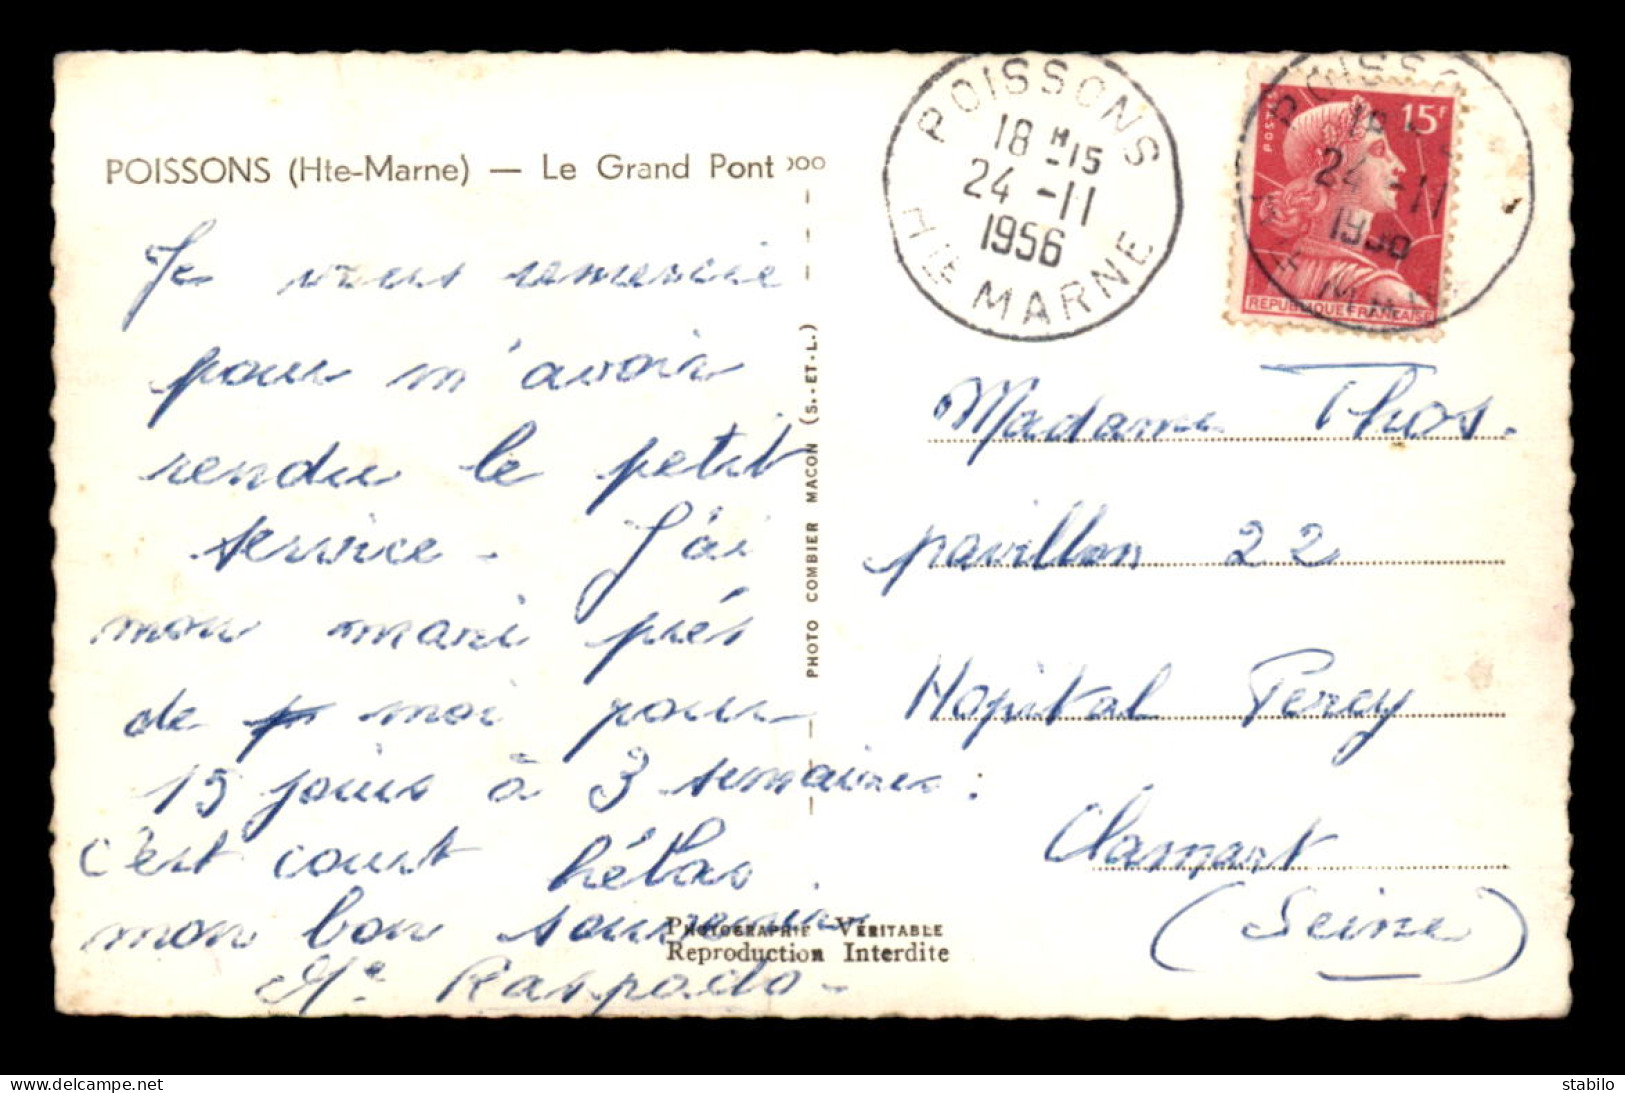 POISSONS (Hte-Marne) — Le Grand Pont
Je vous remercie
pour m'avoir
rendu le petit
service - J'ai
mon mari prés
de moi pour
15 jours à 3 semaines :
c'est court hélas.
mon bon souvenir
Me Raspado-
PHOTO COMBIER MACON (S.-ET-L.)
PHOTOGRAPHIE VÉRITABLE
Reproduction Interdite
POISSONS
18 H 15
24 - 11
1956
HTE MARNE
POISSONS
24 - 11
1956
HTE MARNE
POSTES
15F
REPUBLIQUE FRANÇAISE
Madame Thos.
pavillon 22
Hopital Percy
Clamart
(Seine)
delcampe.net
stabilo